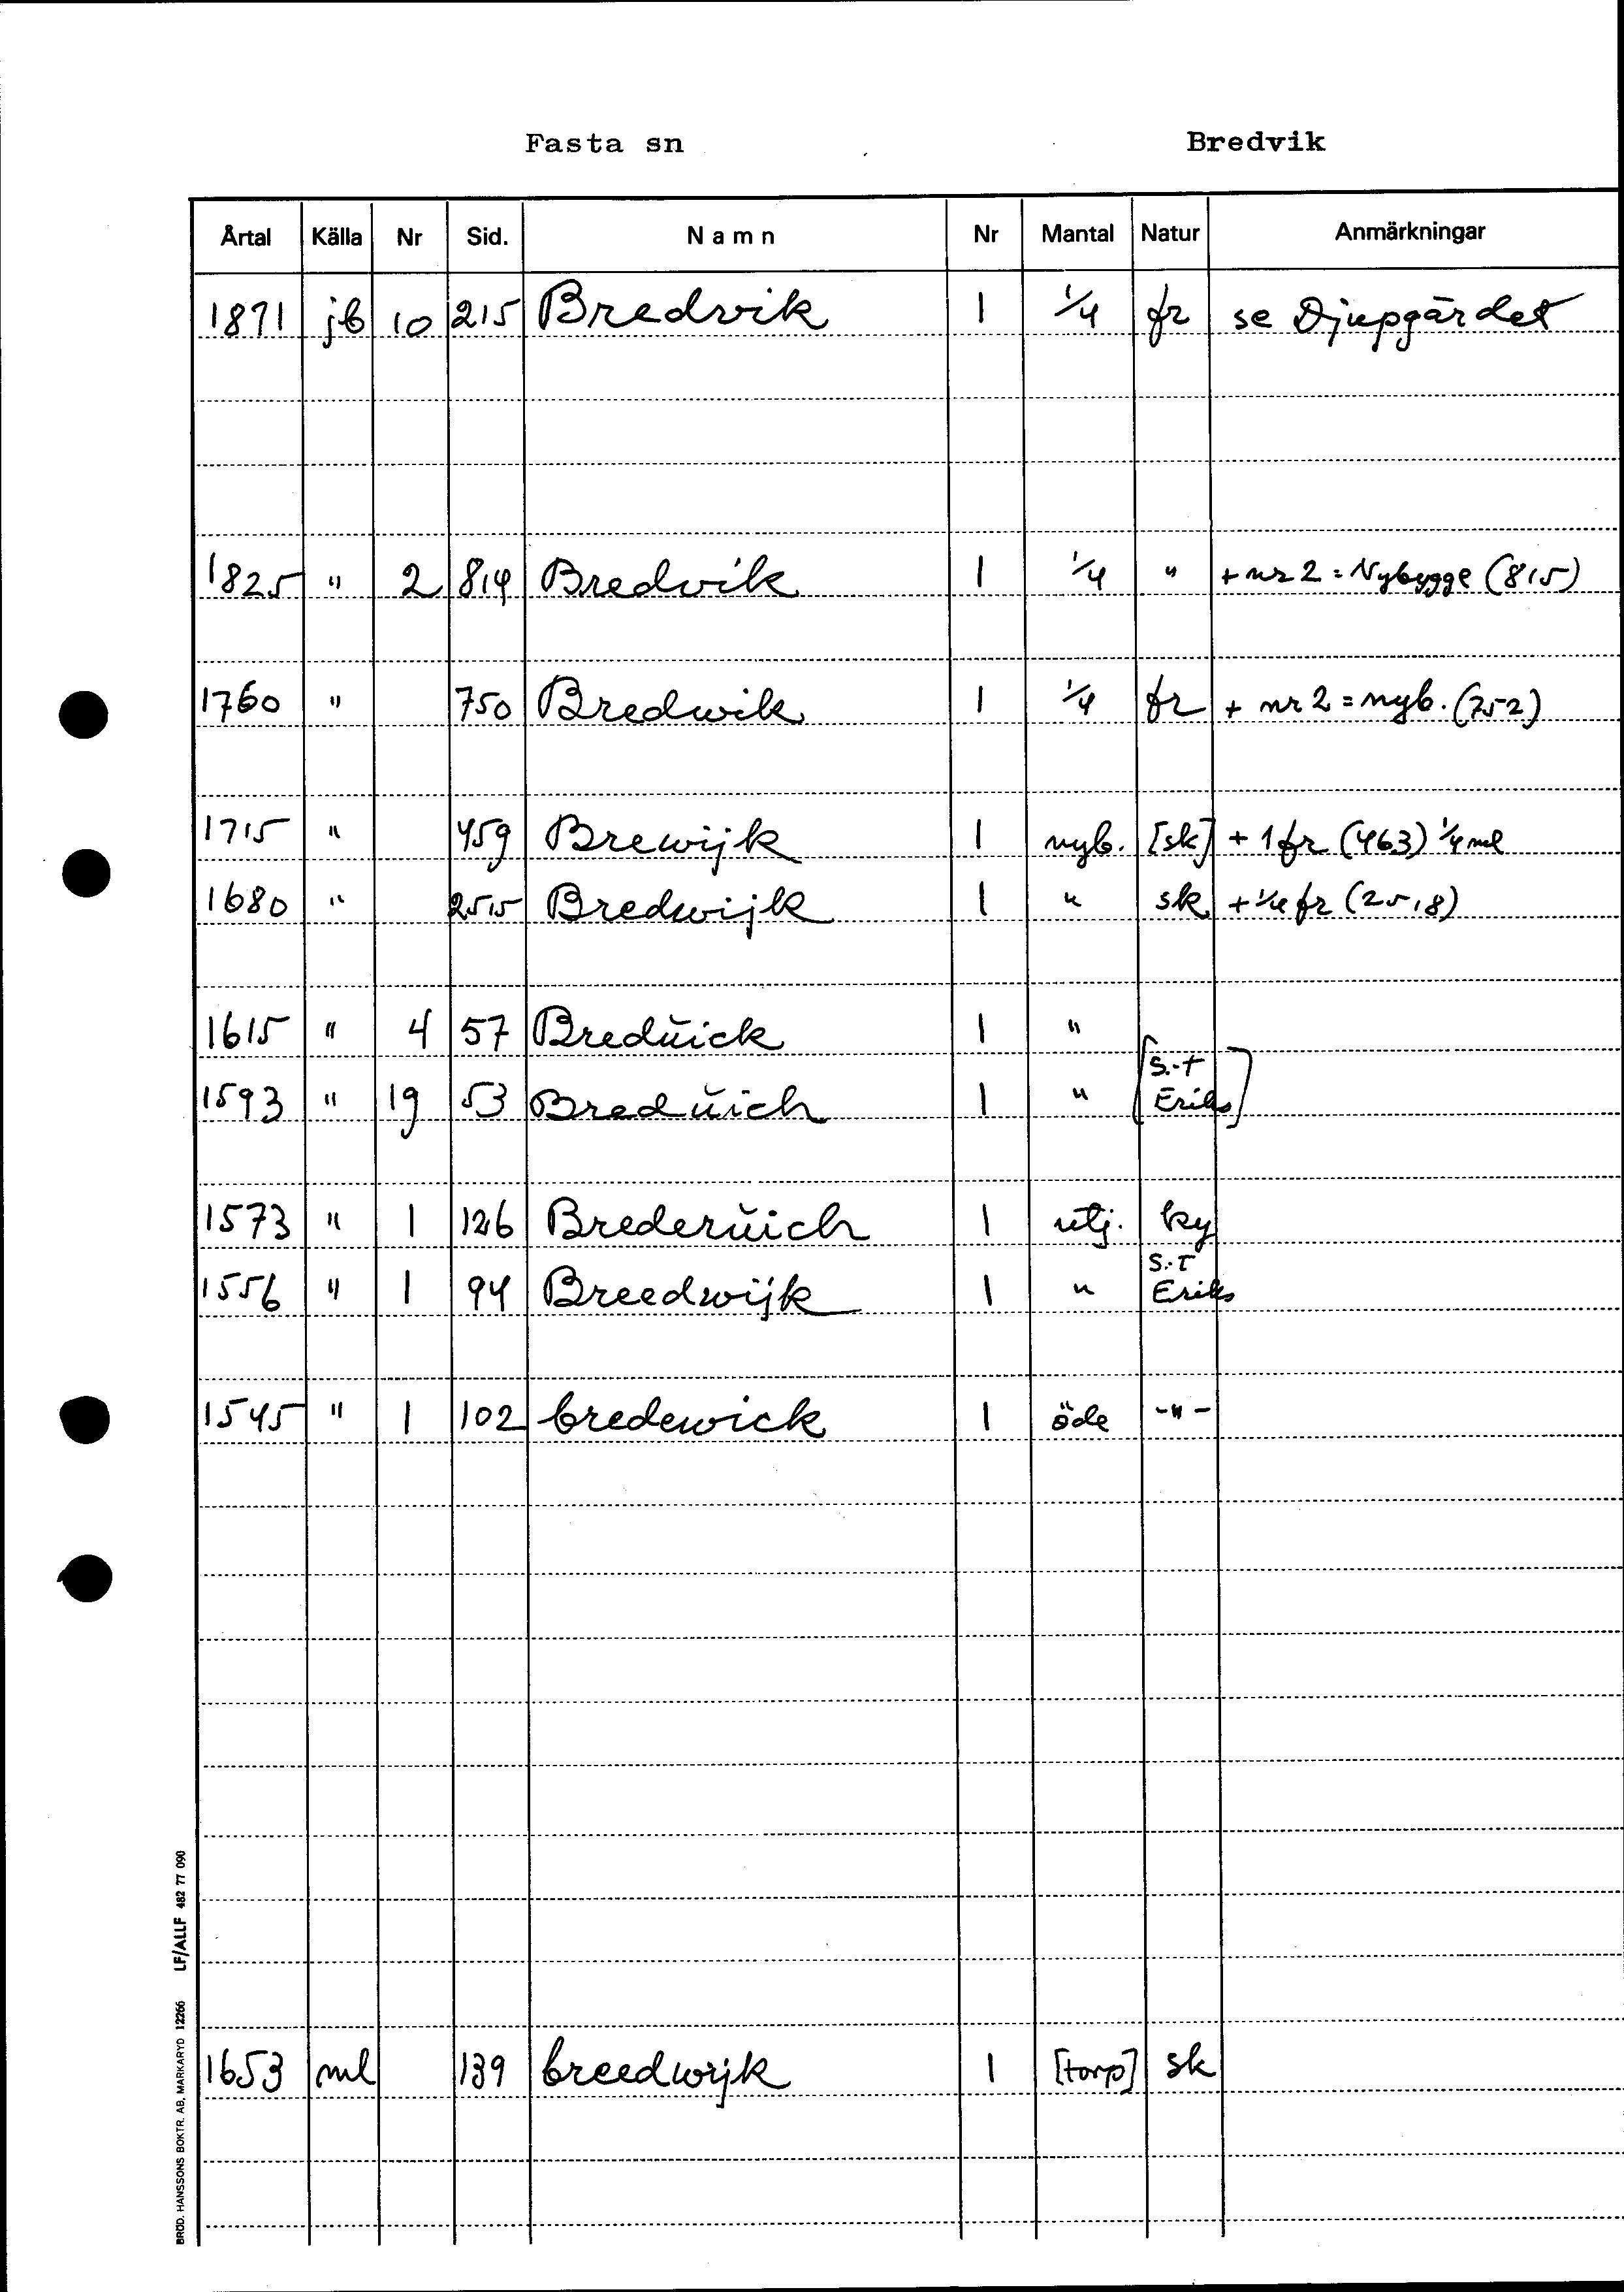 Fasta sn Bredvik
Årtal Källa Nr Sid. Namn Nr Mantal Natur Anmärkningar
1871 jb 10 215 Bredvik 1 1/4 fr se Djupgärdet
1825 " 2 814 Bredvik 1 1/4 " + nr 2 = Nybygge (815)
1760 " 750 Bredwik 1 1/4 fr + nr 2 = nyb. (752)
1715 " 459 Brewijk 1 nyb. [sk] + 1 fr (463) 1/4 ml
1680 " 2515 Bredwijk 1 " sk + 1/4 fr (2518)
1615 " 4 57 Breduick 1 "
[S:t
1593 " 19 53 Breduich 1 " Eriks]
1573 " 1 126 Brederuich 1 utj. ky
S:t
1556 " 1 94 Breedwijk 1 " Eriks
1545 " 1 102 bredewick 1 öde -"-
1653 ml 139 breedwijk 1 [torp] sk
BRÖD. HANSSONS BOKTR. AB, MARKARYD 12266 LF/ALLF 482 77 090